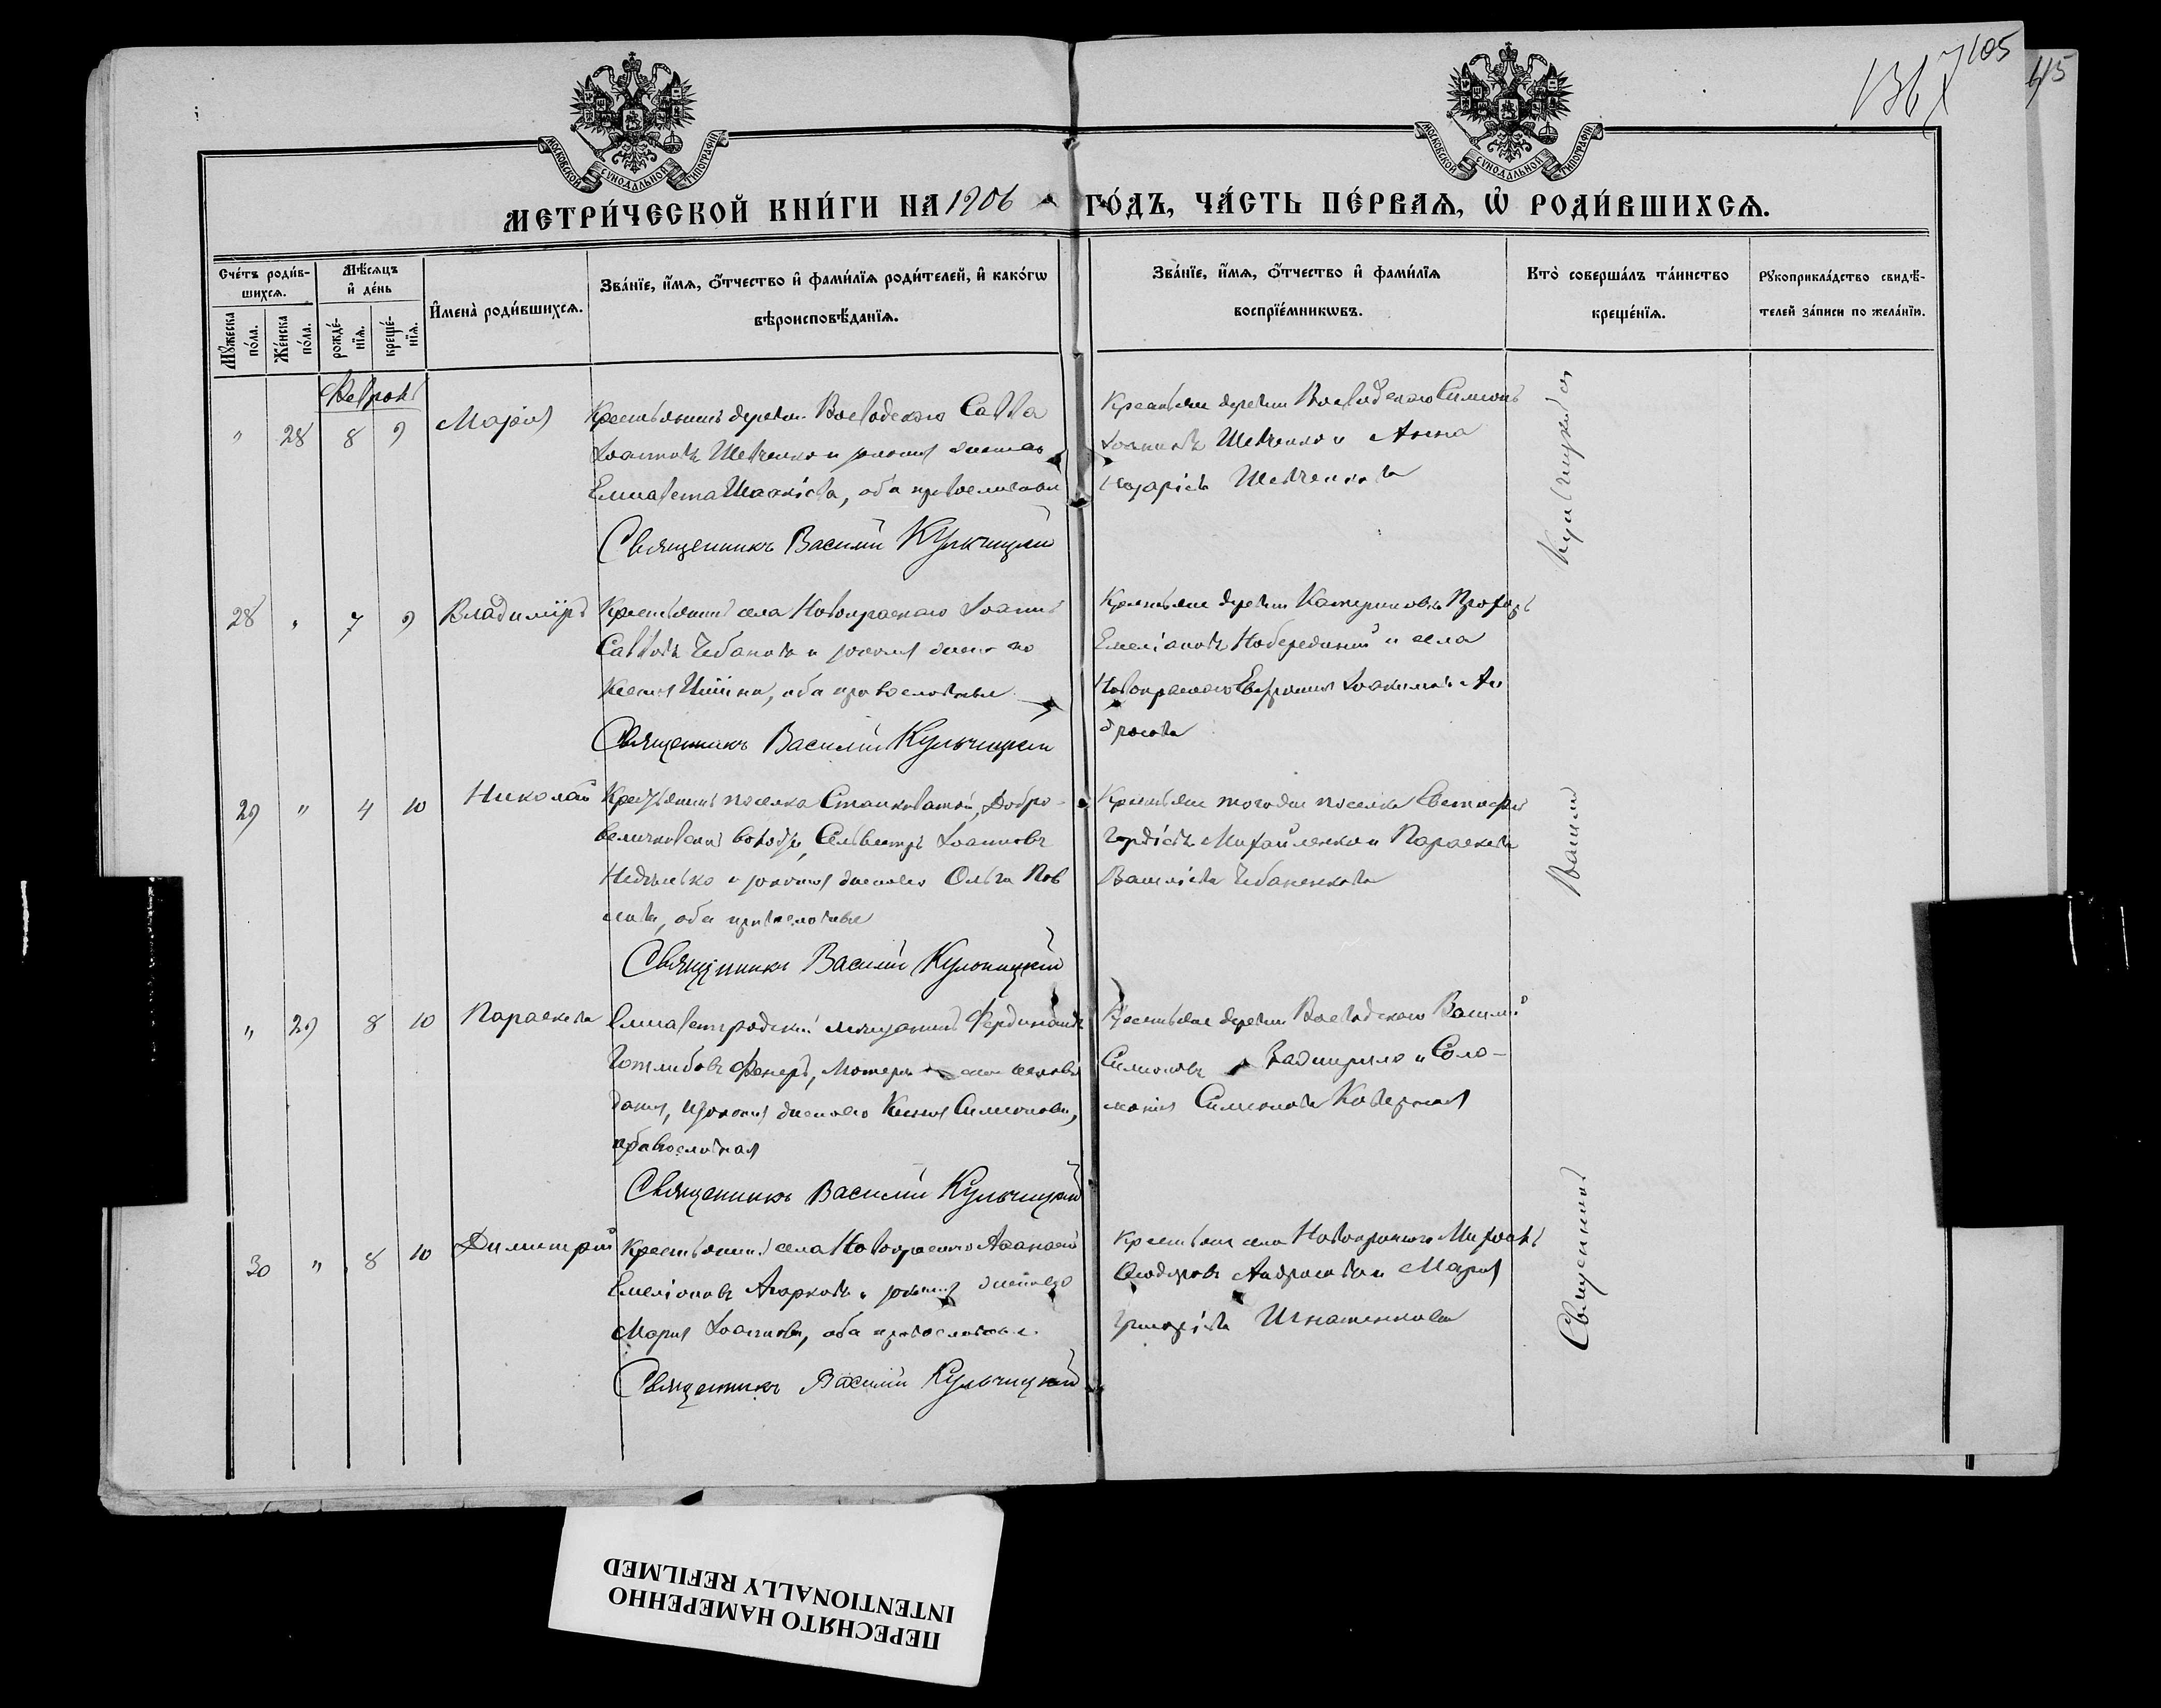 1367 105
45
МОСКОВСКОЙ СѴНОДАЛЬНОЙ ТИПОГРАФІИ
МОСКОВСКОЙ СѴНОДАЛЬНОЙ ТИПОГРАФІИ
МЕТРИ́ЧЕСКОЙ КНИ́ГИ НА 1906 ГО́ДЪ, ЧА́СТЬ ПЕ́РВАѦ, Ѡ҆ РОДИ́ВШИХСѦ.
Сче́тъ роди́в-
шихсѧ.
Мѣ́сѧцъ
и҆ де́нь
Мꙋ́жеска
по́ла.
Же́нска
по́ла.
рожде́-
нїѧ.
креще́-
нїѧ.
И҆мена̀ роди́вшихсѧ.
Зва́нїе, и҆́мѧ, ѻ҆́тчество и҆ фами́лїѧ роди́телей, и҆ како́гѡ
вѣроисповѣ́данїѧ.
Зва́нїе, и҆́мѧ, ѻ҆́тчество и҆ фами́лїѧ
воспрїе́мникѡвъ.
Кто̀ соверша́лъ та́инство
креще́нїѧ.
Рꙋкоприкла́дство свидѣ́-
телей за́писи по жела́нїю.
Февраль
" 28 8 9 Марія
Крестьянинъ деревни Воеводскаго Савва
Іоанновъ Шевченко и законная жена его
Елисавета Исаакіева, оба православные
Священникъ Василій Кульчицкій
Крестьяне деревни Воеводскаго Симеонъ
Іоанновъ Шевченко и Анна
Назаріева Шевченкова
28 " 7 9 Владиміръ
Крестьянинъ села Новокраснаго Іоаннъ
Саввовъ Чебановъ и законная жена его
Ксенія, оба православные
Священникъ Василій Кульчицкій
Крестьяне деревни Катериновки Прохоръ
Емеліановъ Побережный и села
Новокраснаго Евфросинія Іоакимова Ан
дросова
29 " 4 10 Николай
Крестьянинъ поселка Станковатой, Добро-
величковской волости, Сильвестръ Іоанновъ
Недѣлько и законная жена его Ольга Пав
лова, оба православные
Священникъ Василій Кульчицкій
Крестьяне того же поселка Евстафій
Гордіевъ Михайленко и Параскева
Василіева Чебаненкова
" 29 8 10 Параскева
Елисаветградскій мѣщанинъ Фердинандъ
Готлибовъ Фекеръ,
данія, и законная жена его Ксенія Симеонова,
православная
Священникъ Василій Кульчицкій
Крестьяне деревни Воеводскаго Василій
Симеоновъ и Соло-
монія Симеонова
30 " 8 10 Димитрій
Крестьянинъ села Новокраснаго Аѳанасій
Емеліановъ Агарковъ и законная жена его
Марія Іоаннова, оба православные.
Священникъ Василій Кульчицкій
Крестьяне села Новокраснаго Миронъ
Ѳеодоровъ Андросовъ и Марія
Григоріева Игнатенкова
Священникъ Василій Кульчицкій
ПЕРЕСНЯТО НАМЕРЕННО
INTENTIONALLY REFILMED